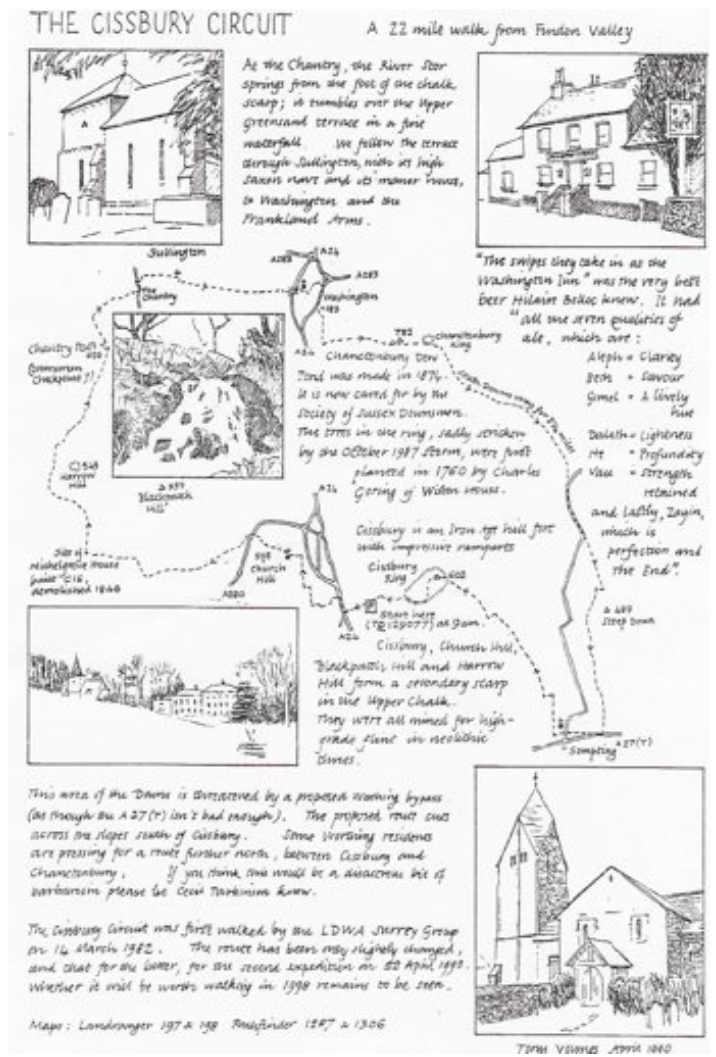 THE CISSBURY CIRCUIT
A 22 mile walk from Findon Valley
At the Chantry, the River Stor
springs from the foot of the chalk
scarp; it tumbles over the Upper
Greensand terrace in a fine
waterfall. We follow the terrace
through Sullington, with its high
Saxon nave and its manor house,
to Washington and the
Frankland Arms.
Sullington
"The swipes they take in at the
Washington Inn" was the very best
beer Hilaire Belloc knew. It had
"all the seven qualities of
ale, which are:
Aleph = Clarity
Beth = Savour
Gimel = A lively
hue
Daleth = Lightness
He = Profundity
Vau = Strength
retained
and lastly, Zayin,
which is
perfection and
The End".
A283
A24
A283
The Chantry
Washington
A24
782
Chanctonbury
Ring
Chantry Post
Chanctonbury Dew
Pond was made in 1874.
It is now cared for by the
Society of Sussex Downsmen.
The trees in the ring, sadly stricken
by the October 1987 storm, were first
planted in 1760 by Charles
Goring of Wiston House.
South Downs Way for
Harrow
Hill
Blackpatch
Hill
A24
Cissbury is an Iron Age hill fort
with impressive ramparts
Site of
Michelgrove House
built C16,
demolished
Church
Hill
A280
Cissbury
Ring
602
Start here
(TQ 129077) at 9am
A24
Steep Down
Cissbury, Church Hill,
Blackpatch Hill and Harrow
Hill form a secondary scarp
in the Upper Chalk.
They were all mined for high-
grade flint in neolithic
times.
Sompting
A27(T)
This area of the Downs is threatened by a proposed Worthing bypass
(as though the A27(T) isn't bad enough). The proposed route cuts
across the slopes south of Cissbury. Some Worthing residents
are pressing for a route further north, between Cissbury and
Chanctonbury. If you think this would be a disastrous bit of
barbarism please let Cecil Parkinson know.
The Cissbury Circuit was first walked by the LDWA Surrey Group
on 14 March 1982. The route has been only slightly changed,
and that for the better, for the second expedition on 22 April 1990.
Whether it will be worth walking in 1998 remains to be seen.
Maps: Landranger 197 & 198 Pathfinder 1287 & 1306
Tony Youngs April 1990